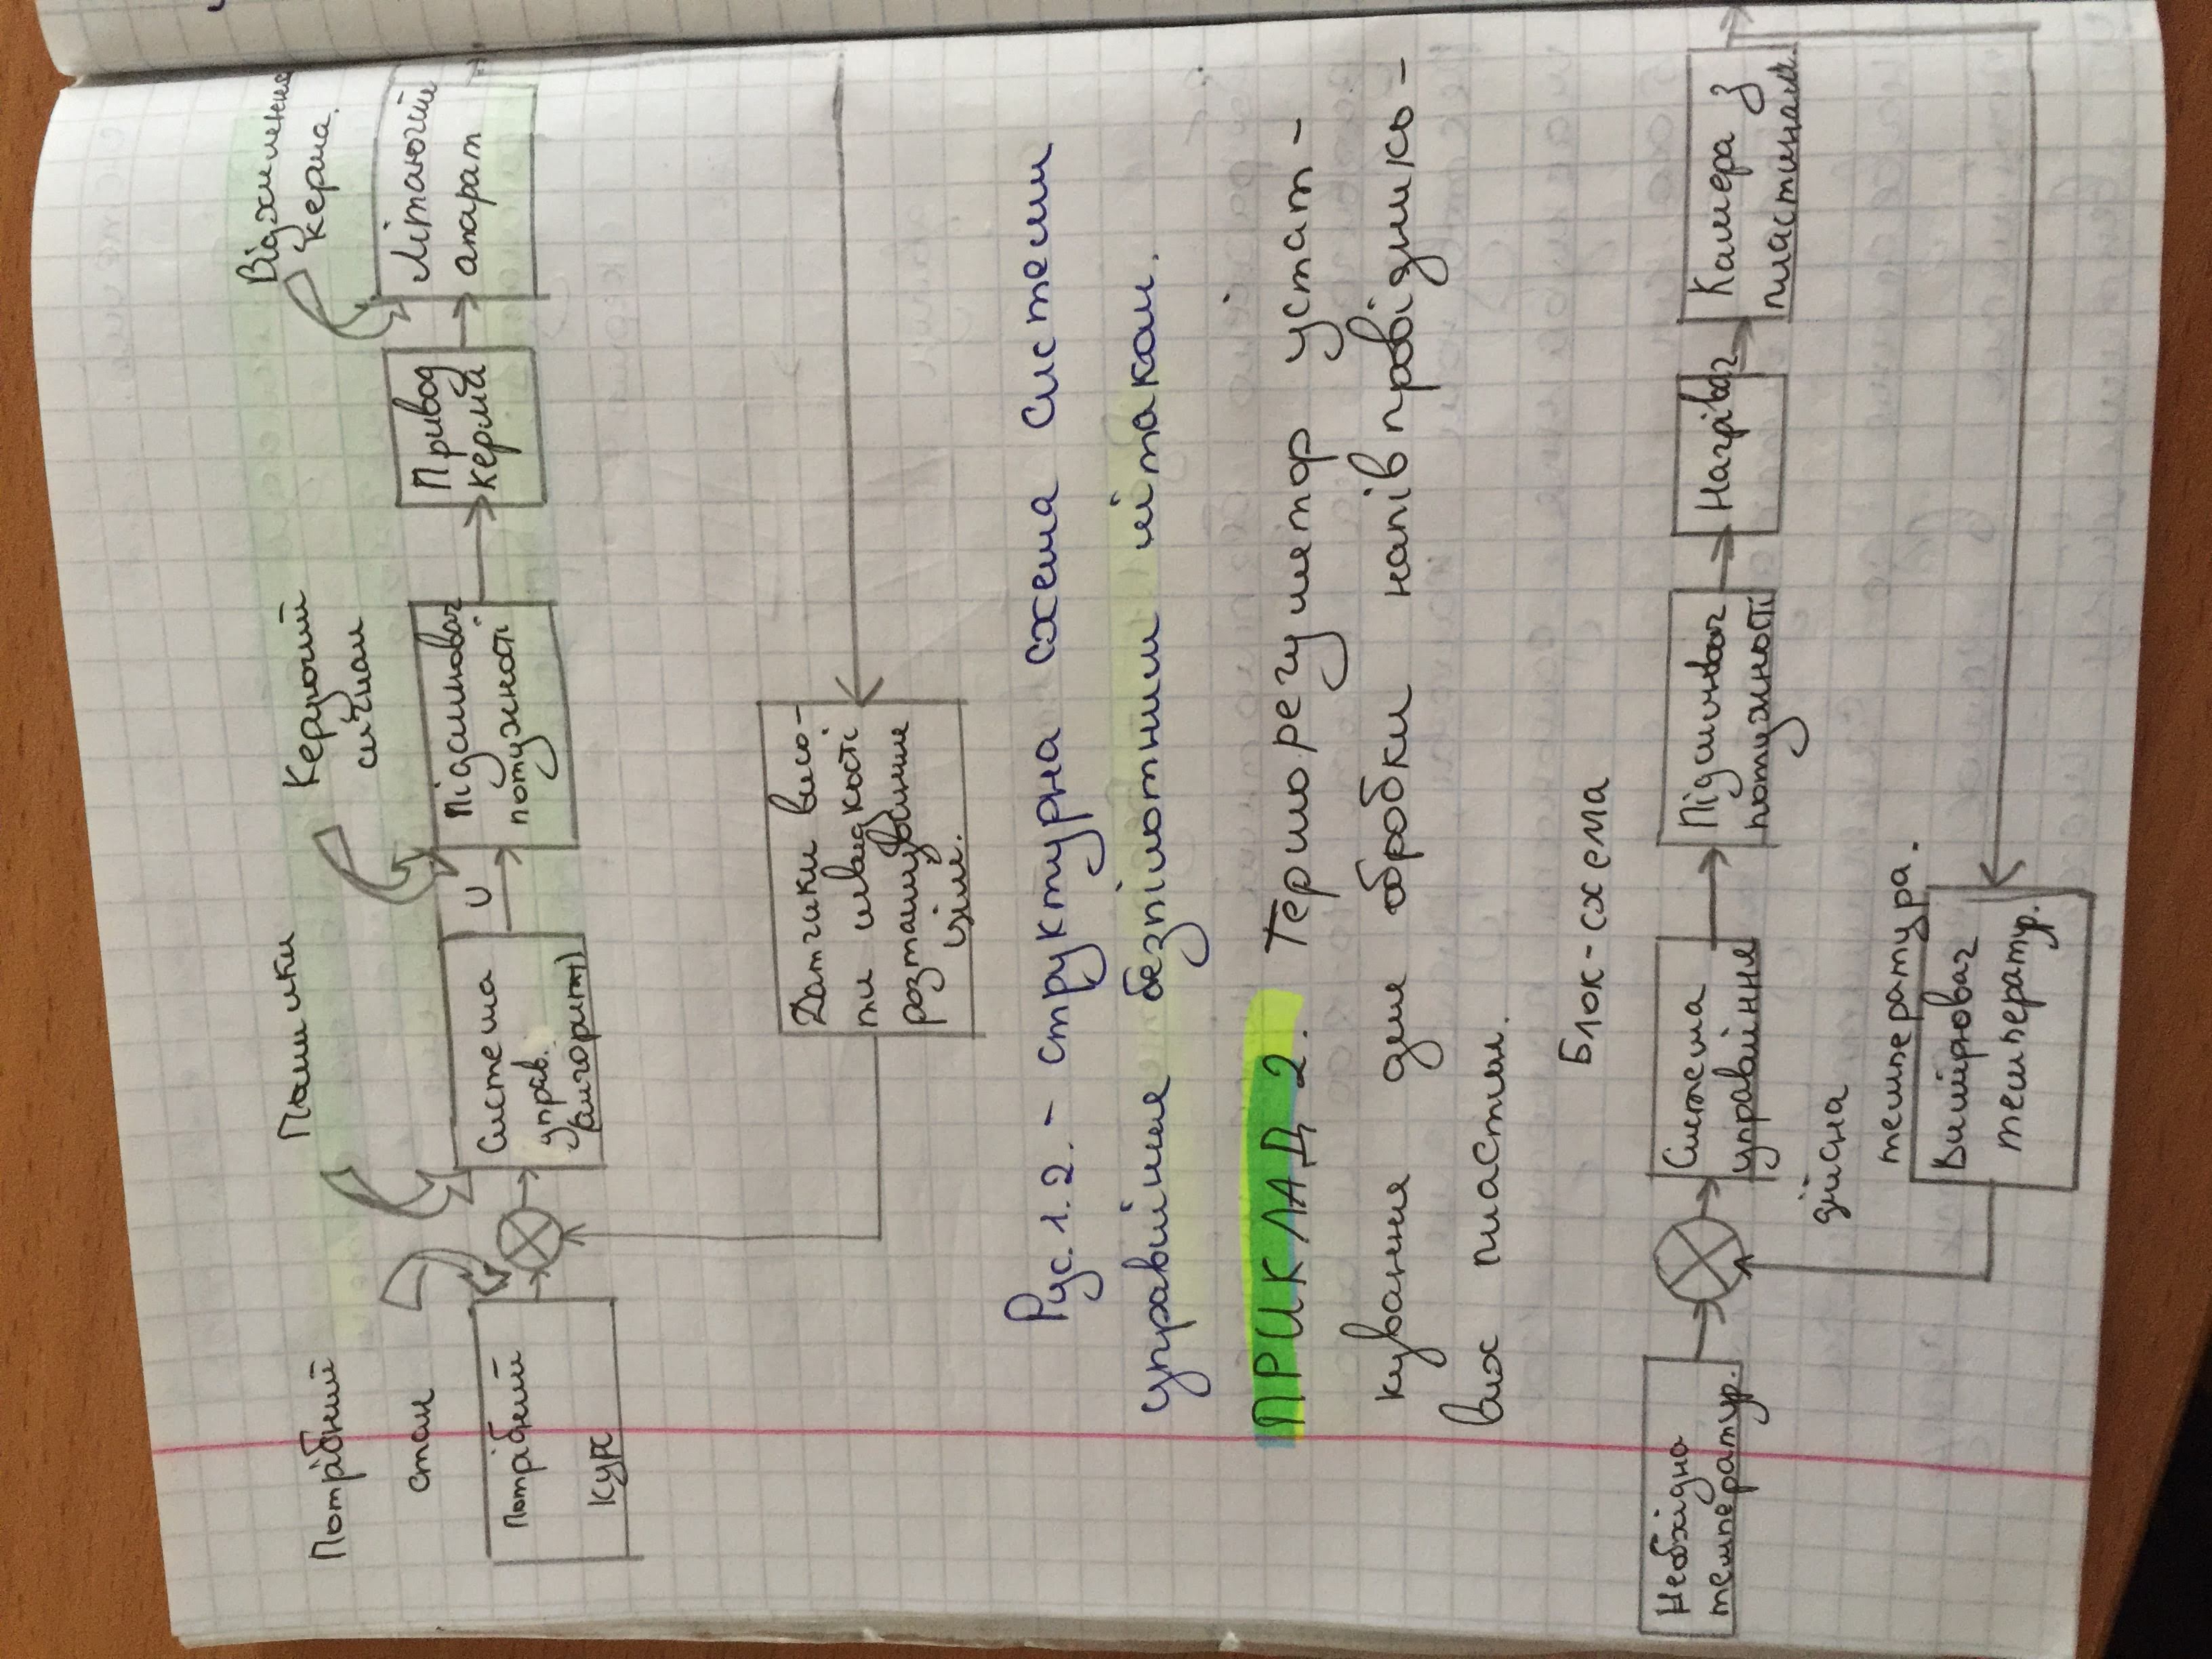 Потрібний
стан
Помилки
Керуючий
сигнал
Відхилення
керма.
Потрібний
курс
Система
управ.
(алгоритм)
U
Підсилювач
потужності
Привод
керма
Літаючий
апарат
Датчики висо-
ти швидкості
розташування
цілі.
Рус. 1. 2. - структурна схема системи
управління безпілотним літаком.
ПРИКЛАД 2. Терморегулятор устат-
кування для обробки напівпровіднико-
вих пластин.
Блок-схема
Необхідна
температур.
Система
управління
Підсилювач
потужності
Нагрівач
Камера з
пластинами.
дійсна
температура.
Вимірювач
температур.